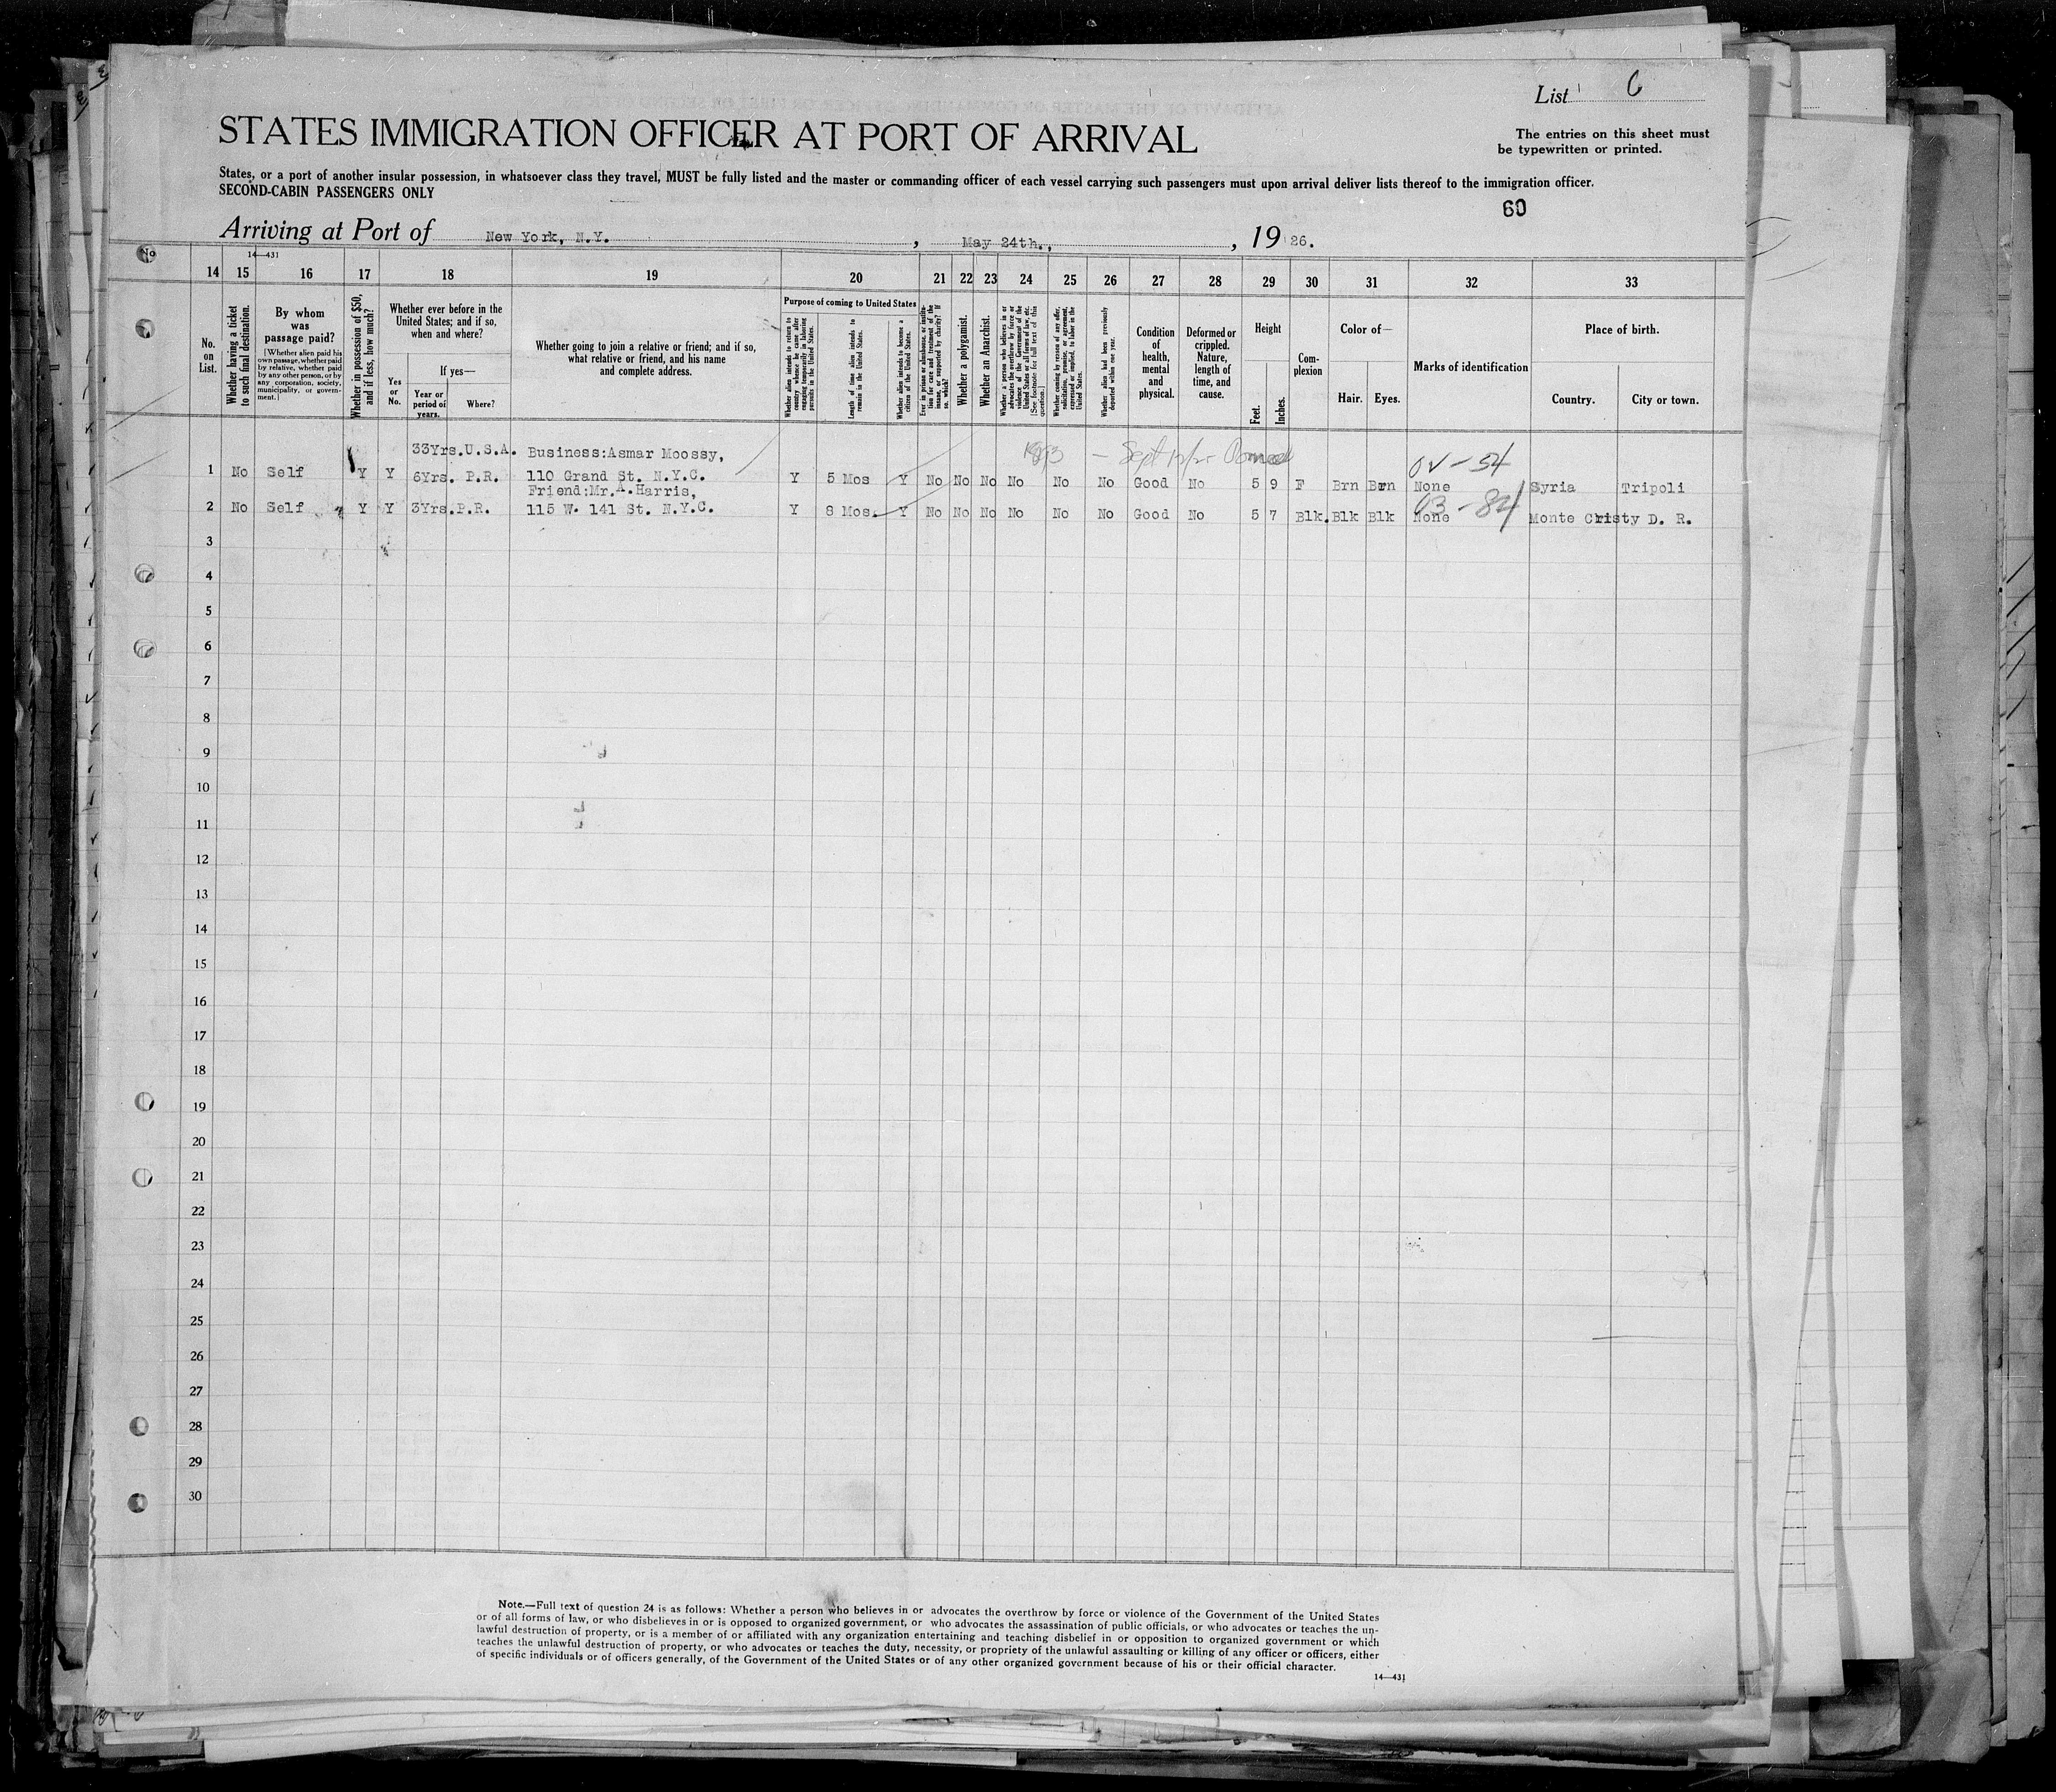 List 6
STATES IMMIGRATION OFFICER AT PORT OF ARRIVAL
The entries on this sheet must
be typewritten or printed.
States, or a port of another insular possession, in whatsoever class they travel, MUST be fully listed and the master or commanding officer of each vessel carrying such passengers must upon arrival deliver lists thereof to the immigration officer.
SECOND-CABIN PASSENGERS ONLY
60
Arriving at Port of New York, N.Y. , May 24th., , 19 26.
14—431
14 15 16 17 18 19 20 21 22 23 24 25 26 27 28 29 30 31 32 33
No.
on
List.
Whether having a ticket
to such final destination.
By whom
was
passage paid?
[Whether alien paid his
own passage, whether paid
by relative, whether paid
by any other person, or by
any corporation, society,
municipality, or govern-
ment.]
Whether in possession of $50,
and if less, how much?
Whether ever before in the
United States; and if so,
when and where?
Yes
or
No.
If yes—
Year or
period of
years.
Where?
Whether going to join a relative or friend; and if so,
what relative or friend, and his name
and complete address.
Purpose of coming to United States
Whether alien intends to return to
country whence he came after
engaging temporarily in laboring
pursuits in the United States.
Length of time alien intends to
remain in the United States.
Whether alien intends to become a
citizen of the United States.
Ever in prison or almshouse, or institu-
tion for care and treatment of the
insane, or supported by charity? If
so, which?
Whether a polygamist.
Whether an Anarchist.
Whether a person who believes in or
advocates the overthrow by force or
violence of the Government of the
United States or all forms of law, etc.
[See footnote for full text of this
question.]
Whether coming by reason of any offer,
solicitation, promise, or agreement,
expressed or implied, to labor in the
United States.
Whether alien had been previously
deported within one year.
Condition
of
health,
mental
and
physical.
Deformed or
crippled.
Nature,
length of
time, and
cause.
Height
Feet.
Inches.
Com-
plexion
Color of—
Hair.
Eyes.
Marks of identification
Place of birth.
Country.
City or town.
33Yrs.U.S.A. Business:Asmar Moossy,
1 No Self Y Y 6Yrs. P.R. 110 Grand St. N.Y.C. Y 5 Mos Y No No No No No No Good No 5 9 F Brn Brn None Syria Tripoli
Friend:Mr.A.Harris,
2 No Self Y Y 3Yrs.P.R. 115 W. 141 St. N.Y.C. Y 8 Mos. Y No No No No No No Good No 5 7 Blk. Blk Blk None Monte Cristy D. R.
3
4
5
6
7
8
9
10
11
12
13
14
15
16
17
18
19
20
21
22
23
24
25
26
27
28
29
30
Note.—Full text of question 24 is as follows: Whether a person who believes in or advocates the overthrow by force or violence of the Government of the United States
or of all forms of law, or who disbelieves in or is opposed to organized government, or who advocates the assassination of public officials, or who advocates or teaches the un-
lawful destruction of property, or is a member of or affiliated with any organization entertaining and teaching disbelief in or opposition to organized government or which
teaches the unlawful destruction of property, or who advocates or teaches the duty, necessity, or propriety of the unlawful assaulting or killing of any officer or officers, either
of specific individuals or of officers generally, of the Government of the United States or of any other organized government because of his or their official character.
14—431